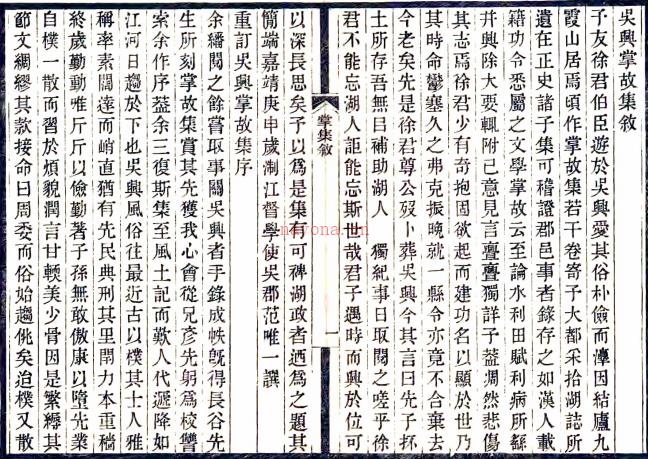 吳興掌故集敘
予友徐君伯臣遊於吳興愛其俗朴儉而廛因結廬九
霞山居焉頃作掌故集若干卷寄予大都采拾湖誌所
遺在正史諸子集可稽證郡邑事者錄存之如漢人載
籍功令悉屬之文學掌故云至論水利田賦利病所繇
井興除大要輒附己意見言亹亹獨詳予葢凋然悲傷
其志焉徐君少有奇抱固欲起而建功名以顯於世乃
其時命鬱蹇久之弗克振晚就一縣令亦竟不合棄去
今老矣先是徐君尊公歿卜葬吳興今其言曰先子抔
土所存吾無目補助湖人 獨紀事日取閱之嗟乎徐
君不能忘湖人詎能忘斯世哉君子遇時而興於位可
掌集敘
一
以深長思矣予以為是集有可裨湖政者迺為之題其
簡端嘉靖庚申歲淛江督學使吳郡范唯一譔
重訂吳興掌故集序
余繙閱之餘嘗取事關吳興者手錄成帙旣得長谷先
生所刻掌故集賞其先獲我心會從兄彥先躬為校讐
索余作序葢余三復斯集至風土記而歎人代遞降如
江河日趨於下也吳興風俗往最近古以樸其士人雅
稱率素闊達而峭直猶有先民典刑其里閈力本重穡
終歲勤動唯斤斤以儉勤著子孫無敢傲康以墮先業
自樸一散而習於煩貌潤言甘輭美少骨因是繁縟其
節文綢繆其款接命曰周委而俗始趨佻矣迨樸又散